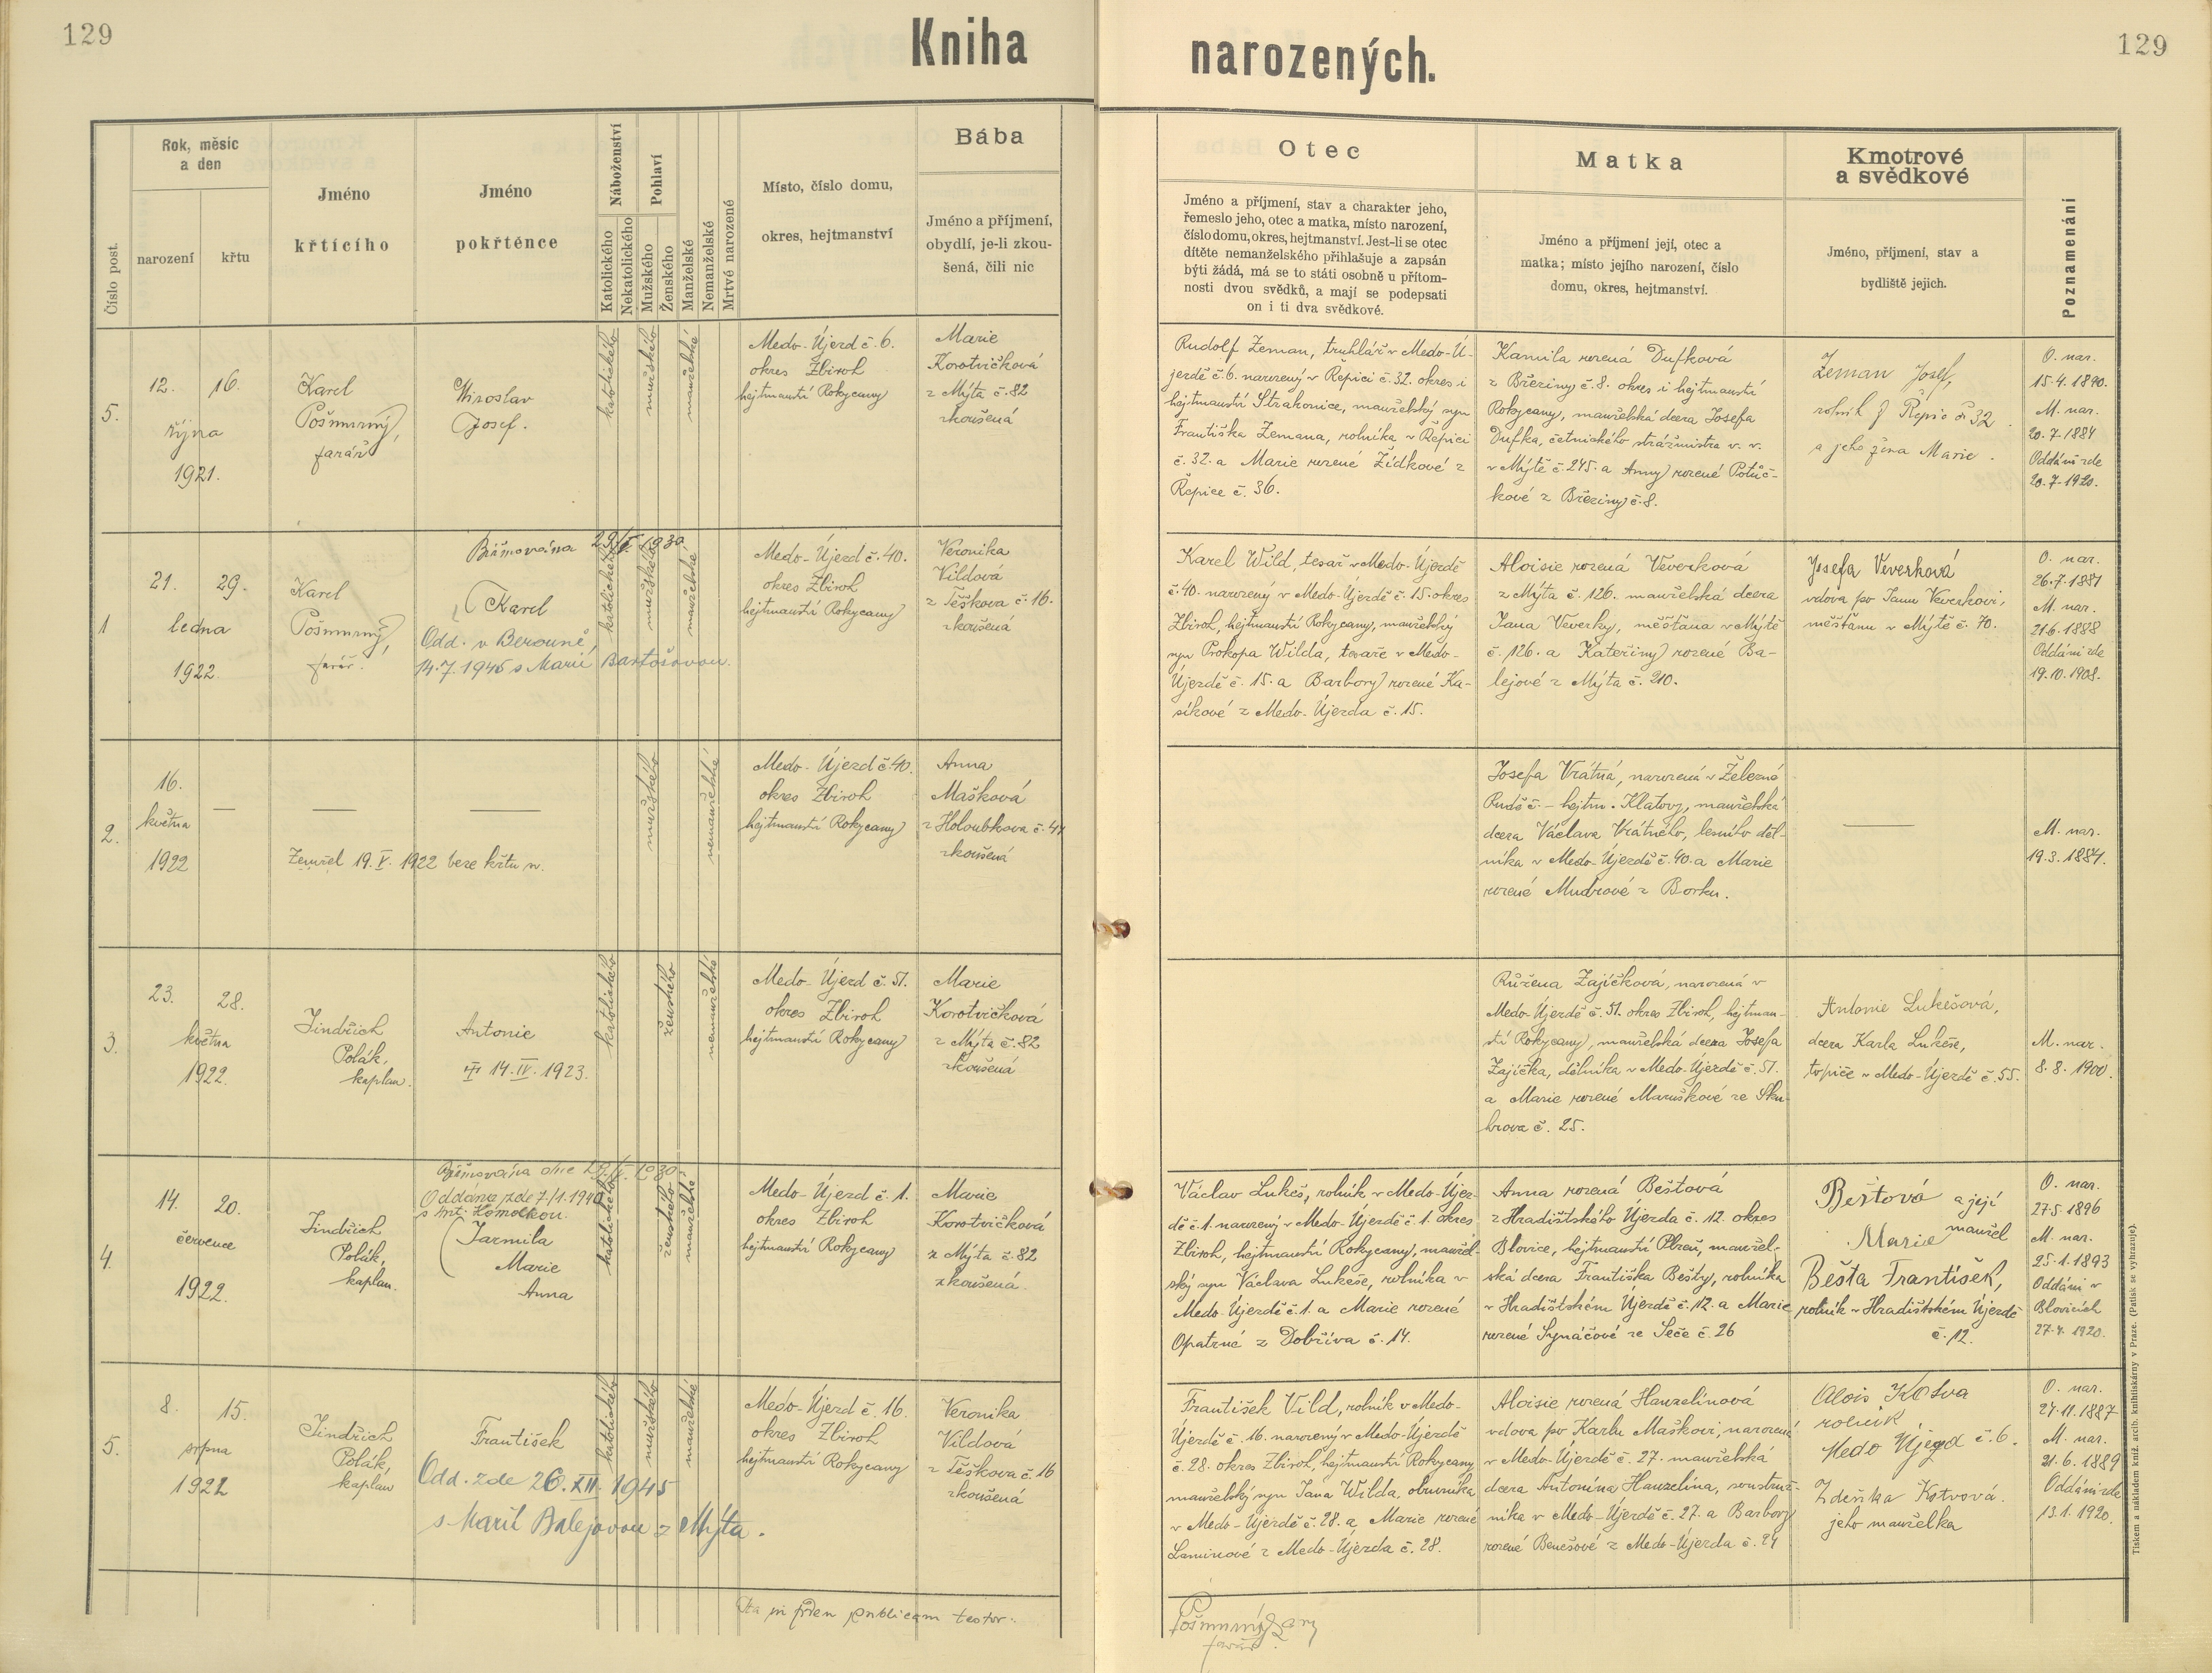 129
Kniha
narozených.
129
Číslo post.
Rok, měsíc
a den
narození
křtu
Jméno
křtícího
Jméno
pokřtěnce
Náboženství
Katolického
Nekatolického
Pohlaví
Mužského
Ženského
Manželské
Nemanželské
Mrtvě narozené
Místo, číslo domu,
okres, hejtmanství
Bába
Jméno a příjmení,
obydlí, je-li zkou-
šená, čili nic
Otec
Jméno a příjmení, stav a charakter jeho,
řemeslo jeho, otec a matka, místo narození,
číslo domu, okres, hejtmanství. Jest-li se otec
dítěte nemanželského přihlašuje a zapsán
býti žádá, má se to státi osobně u přítom-
nosti dvou svědků, a mají se podepsati
on i ti dva svědkové.
Matka
Jméno a příjmení její, otec a
matka; místo jejího narození, číslo
domu, okres, hejtmanství.
Kmotrové
a svědkové
Jméno, příjmení, stav a
bydliště jejich.
Poznamenání
5.
12. 16.
října
1921.
Karel
Pošmurný,
farář
Miroslav
Josef.
katolického
mužského
manželské
Medo-Újezd č. 6.
okres Zbiroh
hejtmanství Rokycany
Marie
Korotvičková
z Mýta č. 82
zkoušená
Rudolf Zeman, truhlář v Medo-Ú-
jezdě č. 6. narozený v Řepici č. 32. okres i
hejtmanství Strakonice, manželský syn
Františka Zemana, rolníka v Řepici
č. 32. a Marie rozené Žídkové z
Řepice č. 36.
Kamila rozená Dufková
z Březiny č. 8. okres i hejtmanství
Rokycany, manželská dcera Josefa
Dufka, četnického strážmistra v. v.
v Mýtě č. 245. a Anny rozené Potůč-
kové z Březiny č. 8.
Zeman Josef,
rolník z Řepic č 32
a jeho žena Marie.
O. nar.
15.4.1890.
M. nar.
20.7.1884
Oddáni zde
20.7.1920.
1
21. 29.
ledna
1922.
Karel
Pošmurný,
farář.
Biřmována 29/V. 1930.
Karel
Odd. v Berouně,
14.7.1945 s Marií Bartošovou.
katolického
mužského
manželské
Medo-Újezd č. 40.
okres Zbiroh
hejtmanství Rokycany
Veronika
Vildová
z Těškova č. 16.
zkoušená
Karel Wild, tesař v Medo-Újezdě
č. 40. narozený v Medo-Újezdě č. 15. okres
Zbiroh, hejtmanství Rokycany, manželský
syn Prokopa Wilda, tesaře v Medo-
Újezdě č. 15. a Barbory rozené Ka-
síkové z Medo-Újezda č. 15.
Aloisie rozená Veverková
z Mýta č. 126. manželská dcera
Jana Veverky, měšťana v Mýtě
č. 126. a Kateřiny rozené Ba-
lejové z Mýta č. 210.
Josefa Veverková
vdova po Janu Veverkovi,
měšťanu v Mýtě č. 70.
O. nar.
26.7.1881
M. nar.
21.6.1888
Oddáni zde
19.10.1908.
2.
16.
května
1922
Zemřel 19. V. 1922 beze křtu n.
mužského
nemanželské
Medo-Újezd č. 40.
okres Zbiroh
hejtmanství Rokycany
Anna
Mašková
z Holoubkova č. 47
zkoušená
Josefa Vrátná, narozená v Železné
Rudě č. – hejtm. Klatovy, manželská
dcera Václava Vrátného, lesního děl-
níka v Medo-Újezdě č. 40. a Marie
rozené Mudrové z Borku.
M. nar.
19.3.1884.
3.
23. 28.
května
1922.
Jindřich
Polák,
kaplan.
Antonie
14. IV. 1923.
katolického
ženského
nemanželské
Medo-Újezd č. 51.
okres Zbiroh
hejtmanství Rokycany
Marie
Korotvičková
z Mýta č. 82
zkoušená
Růžena Zajíčková, narozená v
Medo-Újezdě č. 51. okres Zbiroh, hejtman-
ství Rokycany, manželská dcera Josefa
Zajíčka, dělníka v Medo-Újezdě č. 51.
a Marie rozené Maruškové ze Sku-
hrova č. 25.
Antonie Lukešová,
dcera Karla Lukeše,
topiče v Medo-Újezdě č. 55.
M. nar.
8.8.1900.
4.
14. 20.
července
1922.
Jindřich
Polák,
kaplan.
Biřmována dne 29/V. 1930.
Oddána zde 7/1.1940
s Ant. Homolkou.
Jarmila
Marie
Anna
katolického
ženského
manželské
Medo-Újezd č. 1.
okres Zbiroh
hejtmanství Rokycany
Marie
Korotvičková
z Mýta č. 82
zkoušená.
Václav Lukeš, rolník v Medo-Újez-
dě č. 1. narozený v Medo-Újezdě č. 1. okres
Zbiroh, hejtmanství Rokycany, manžel-
ský syn Václava Lukeše, rolníka v
Medo-Újezdě č. 1. a Marie rozené
Opatrné z Dobříva č. 14.
Anna rozená Beštová
z Hradištského Újezda č. 12. okres
Blovice, hejtmanství Plzeň, manžel-
ská dcera Františka Bešty, rolníka
v Hradištském Újezdě č. 12. a Marie
rozené Synáčové ze Seče č. 26
Beštová a její
Marie manžel
Bešta František,
rolník v Hradištském Újezdě
č. 12.
O. nar.
27.5.1896
M. nar.
25.1.1893
Oddáni v
Blovicích
27.4.1920.
5.
8. 15.
srpna
1922
Jindřich
Polák,
kaplan
František
Odd. zde 26. XII. 1945
s Marií Balejovou z Mýta.
katolického
mužského
manželské
Medo-Újezd č. 16.
okres Zbiroh
hejtmanství Rokycany
Veronika
Vildová
z Těškova č. 16
zkoušená
František Vild, rolník v Medo-
Újezdě č. 16. narozený v Medo-Újezdě
č. 28. okres Zbiroh, hejtmanství Rokycany
manželský syn Jana Wilda, obuvníka
v Medo-Újezdě č. 28. a Marie rozené
Laminové z Medo-Újezda č. 28.
Aloisie rozená Hanzelínová
vdova po Karlu Maškovi, narozená
v Medo-Újezdě č. 27. manželská
dcera Antonína Hanzelína, soustruž-
níka v Medo-Újezdě č. 27. a Barbory
rozené Benešové z Medo-Újezda č. 24
Alois Kotva
rolník
Medo Újezd č. 6.
Zdeňka Kotvová.
jeho manželka
O. nar.
27.11.1887
M. nar.
21.6.1889
Oddáni zde
13.1.1920.
Ita in fidem publicam testor:
Pošmurný
farář.
Tiskem a nákladem kníž. arcib. knihtiskárny v Praze. (Patisk se vyhrazuje).